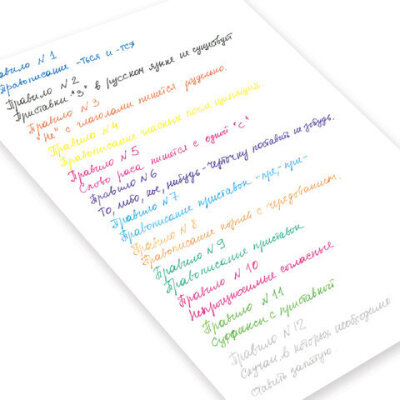 Правило N 1
Правописание -ться и -тся
Правило N 2
Приставки "З" в русском языке не существует
Правило N 3
"Не" с глаголами пишется раздельно.
Правило N 4
Правописание гласных после шипящих
Правило N 5
Слово раса пишется с одной "с"
Правило N 6
То, либо, кое, нибудь - черточку поставить не забудь.
Правило N 7
Правописание приставок -пре, -при-
Правило N 8
Правописание корней с чередованием.
Правило N 9
Правописание приставок
Правило N 10
Непроизносимые согласные
Правило N 11
Суффиксы с приставкой
Правило N 12
Случаи, в которых необходимо
ставить запятую.